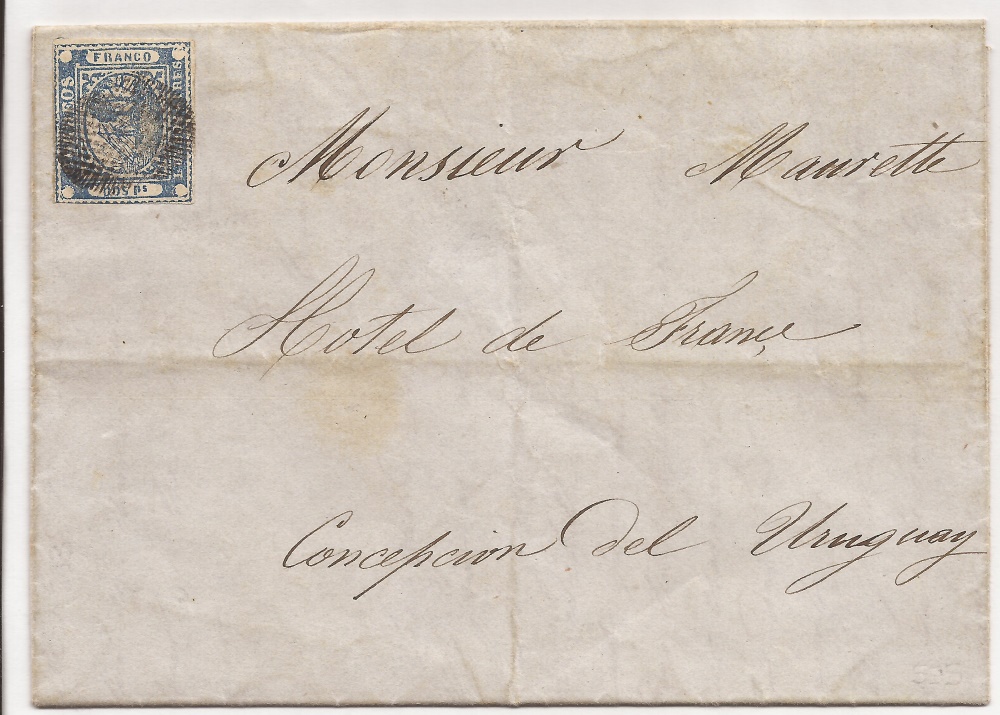 FRANCO
EOS
RES
DOS ps
Monsieur Maurette
Hotel de France
Concepcion del Uruguay